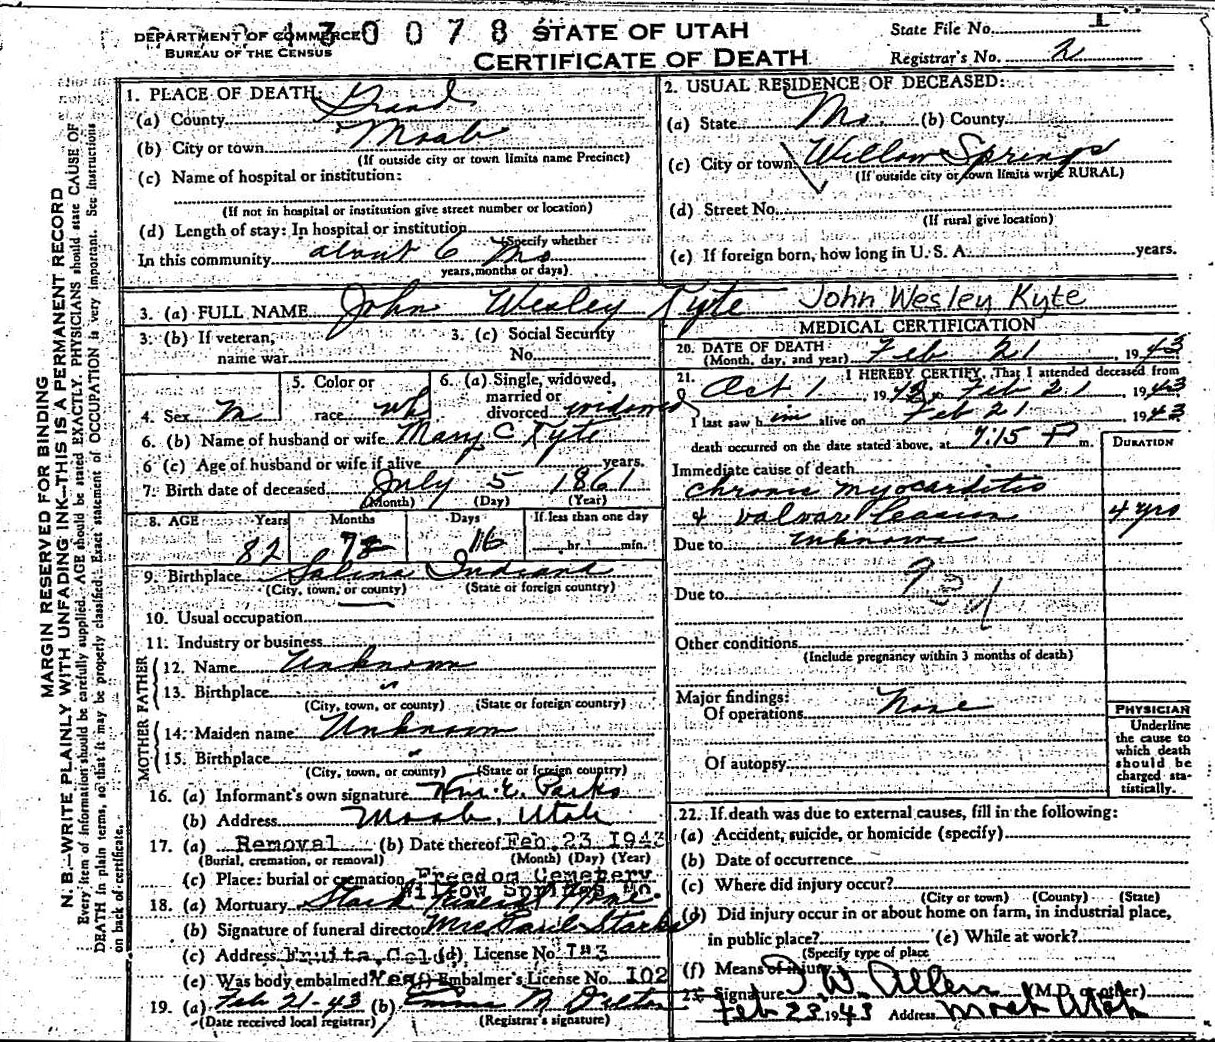 DEPARTMENT OF COMMERCE
BUREAU OF THE CENSUS
430078
STATE OF UTAH
CERTIFICATE OF DEATH
State File No. 1
Registrar's No. 2
MARGIN RESERVED FOR BINDING
N. B.—WRITE PLAINLY WITH UNFADING INK—THIS IS A PERMANENT RECORD
Every item of information should be carefully supplied. AGE should be stated EXACTLY. PHYSICIANS should state CAUSE OF
DEATH in plain terms, so that it may be properly classified. Exact statement of OCCUPATION is very important. See instructions
on back of certificate.
1. PLACE OF DEATH:
(a) County Grand
(b) City or town Moab
(If outside city or town limits name Precinct)
(c) Name of hospital or institution:
(If not in hospital or institution give street number or location)
(d) Length of stay: In hospital or institution
(Specify whether
In this community about 6 Mo
years, months or days)
2. USUAL RESIDENCE OF DECEASED:
(a) State Mo. (b) County
(c) City or town Willow Springs
(If outside city or town limits write RURAL)
(d) Street No.
(If rural give location)
(e) If foreign born, how long in U. S. A. years.
3. (a) FULL NAME John Wesley Kyte John Wesley Kyte
3. (b) If veteran,
name war
3. (c) Social Security
No.
4. Sex M
5. Color or
race wh
6. (a) Single, widowed,
married or
divorced widowed
6. (b) Name of husband or wife Mary C Kyte
6 (c) Age of husband or wife if alive years.
7. Birth date of deceased July 5 1861
(Month) (Day) (Year)
8. AGE Years Months Days If less than one day
82 16 hr. min.
9. Birthplace Salina Indiana
(City, town, or county) (State or foreign country)
10. Usual occupation
11. Industry or business
FATHER
12. Name Unknown
13. Birthplace "
(City, town, or county) (State or foreign country)
MOTHER
14. Maiden name Unknown
15. Birthplace "
(City, town, or county) (State or foreign country)
16. (a) Informant's own signature Wm. E. Parks
(b) Address Moab, Utah
17. (a) Removal (b) Date thereof Feb. 23 1943
(Burial, cremation, or removal) (Month) (Day) (Year)
(c) Place: burial or cremation Freedom Cemetery
Willow Springs Mo.
18. (a) Mortuary Stark Funeral Home.
(b) Signature of funeral director Mrs. Paul Starks
(c) Address Fruita, Colo. (d) License No. 183
(e) Was body embalmed? Yes (f) Embalmer's License No. 102
19. (a) Feb 21-43 (b) Emma M Dalton
(Date received local registrar) (Registrar's signature)
MEDICAL CERTIFICATION
20. DATE OF DEATH:
(Month, day, and year) Feb 21, 1943
21. I HEREBY CERTIFY, That I attended deceased from
Oct 1, 1942, to Feb 21, 1943
I last saw him alive on Feb 21 1943
death occurred on the date stated above, at 7:15 P m.
DURATION
Immediate cause of death
chronic myocarditis
& valvar leasion 4 yrs
Due to unknown
Due to
Other conditions
(Include pregnancy within 3 months of death)
Major findings:
Of operations None
Of autopsy
PHYSICIAN
Underline
the cause to
which death
should be
charged sta-
tistically.
22. If death was due to external causes, fill in the following:
(a) Accident, suicide, or homicide (specify)
(b) Date of occurrence
(c) Where did injury occur?
(City or town) (County) (State)
(d) Did injury occur in or about home on farm, in industrial place,
in public place? (e) While at work?
(Specify type of place
(f) Means of injury
23. Signature I. W. Allen (M.D. or other)
Feb 23 1943 Address Moab Utah